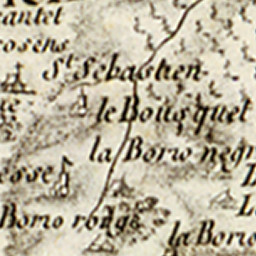 antel
osens
St. Sebastien
le Bousquet
la Borio negr
esse
Borio rouge
L
la Borio